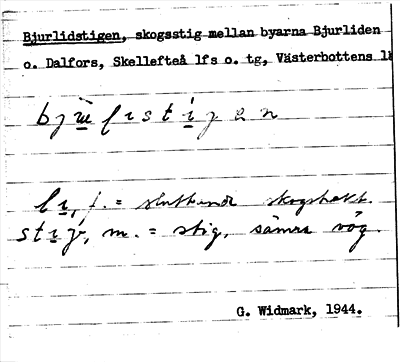 Bjurlidstigen, skogsstig mellan byarna Bjurliden
o. Dalfors, Skellefteå lfs o. tg, Västerbottens lä
f. = sluttande skogstrakt.
m. = stig, sämre väg.
G. Widmark, 1944.